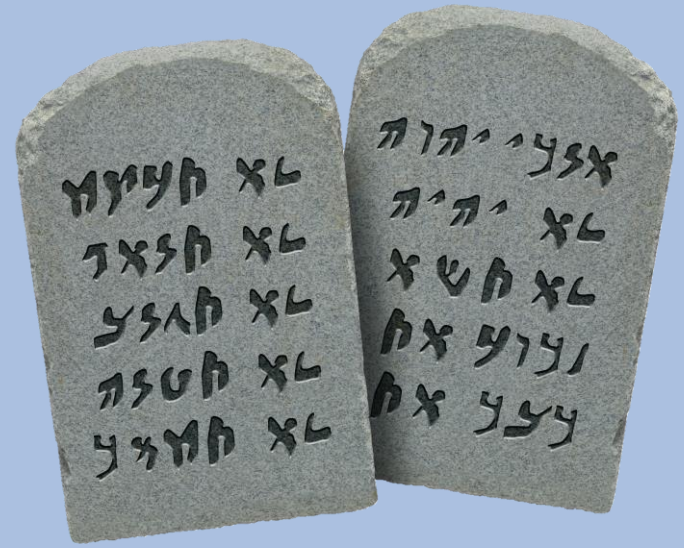 אנכי יהוה
לא יהיה
לא תשא
זכור את
כבד את
לא תרצח
לא תנאף
לא תגנב
לא תענה
לא תחמד